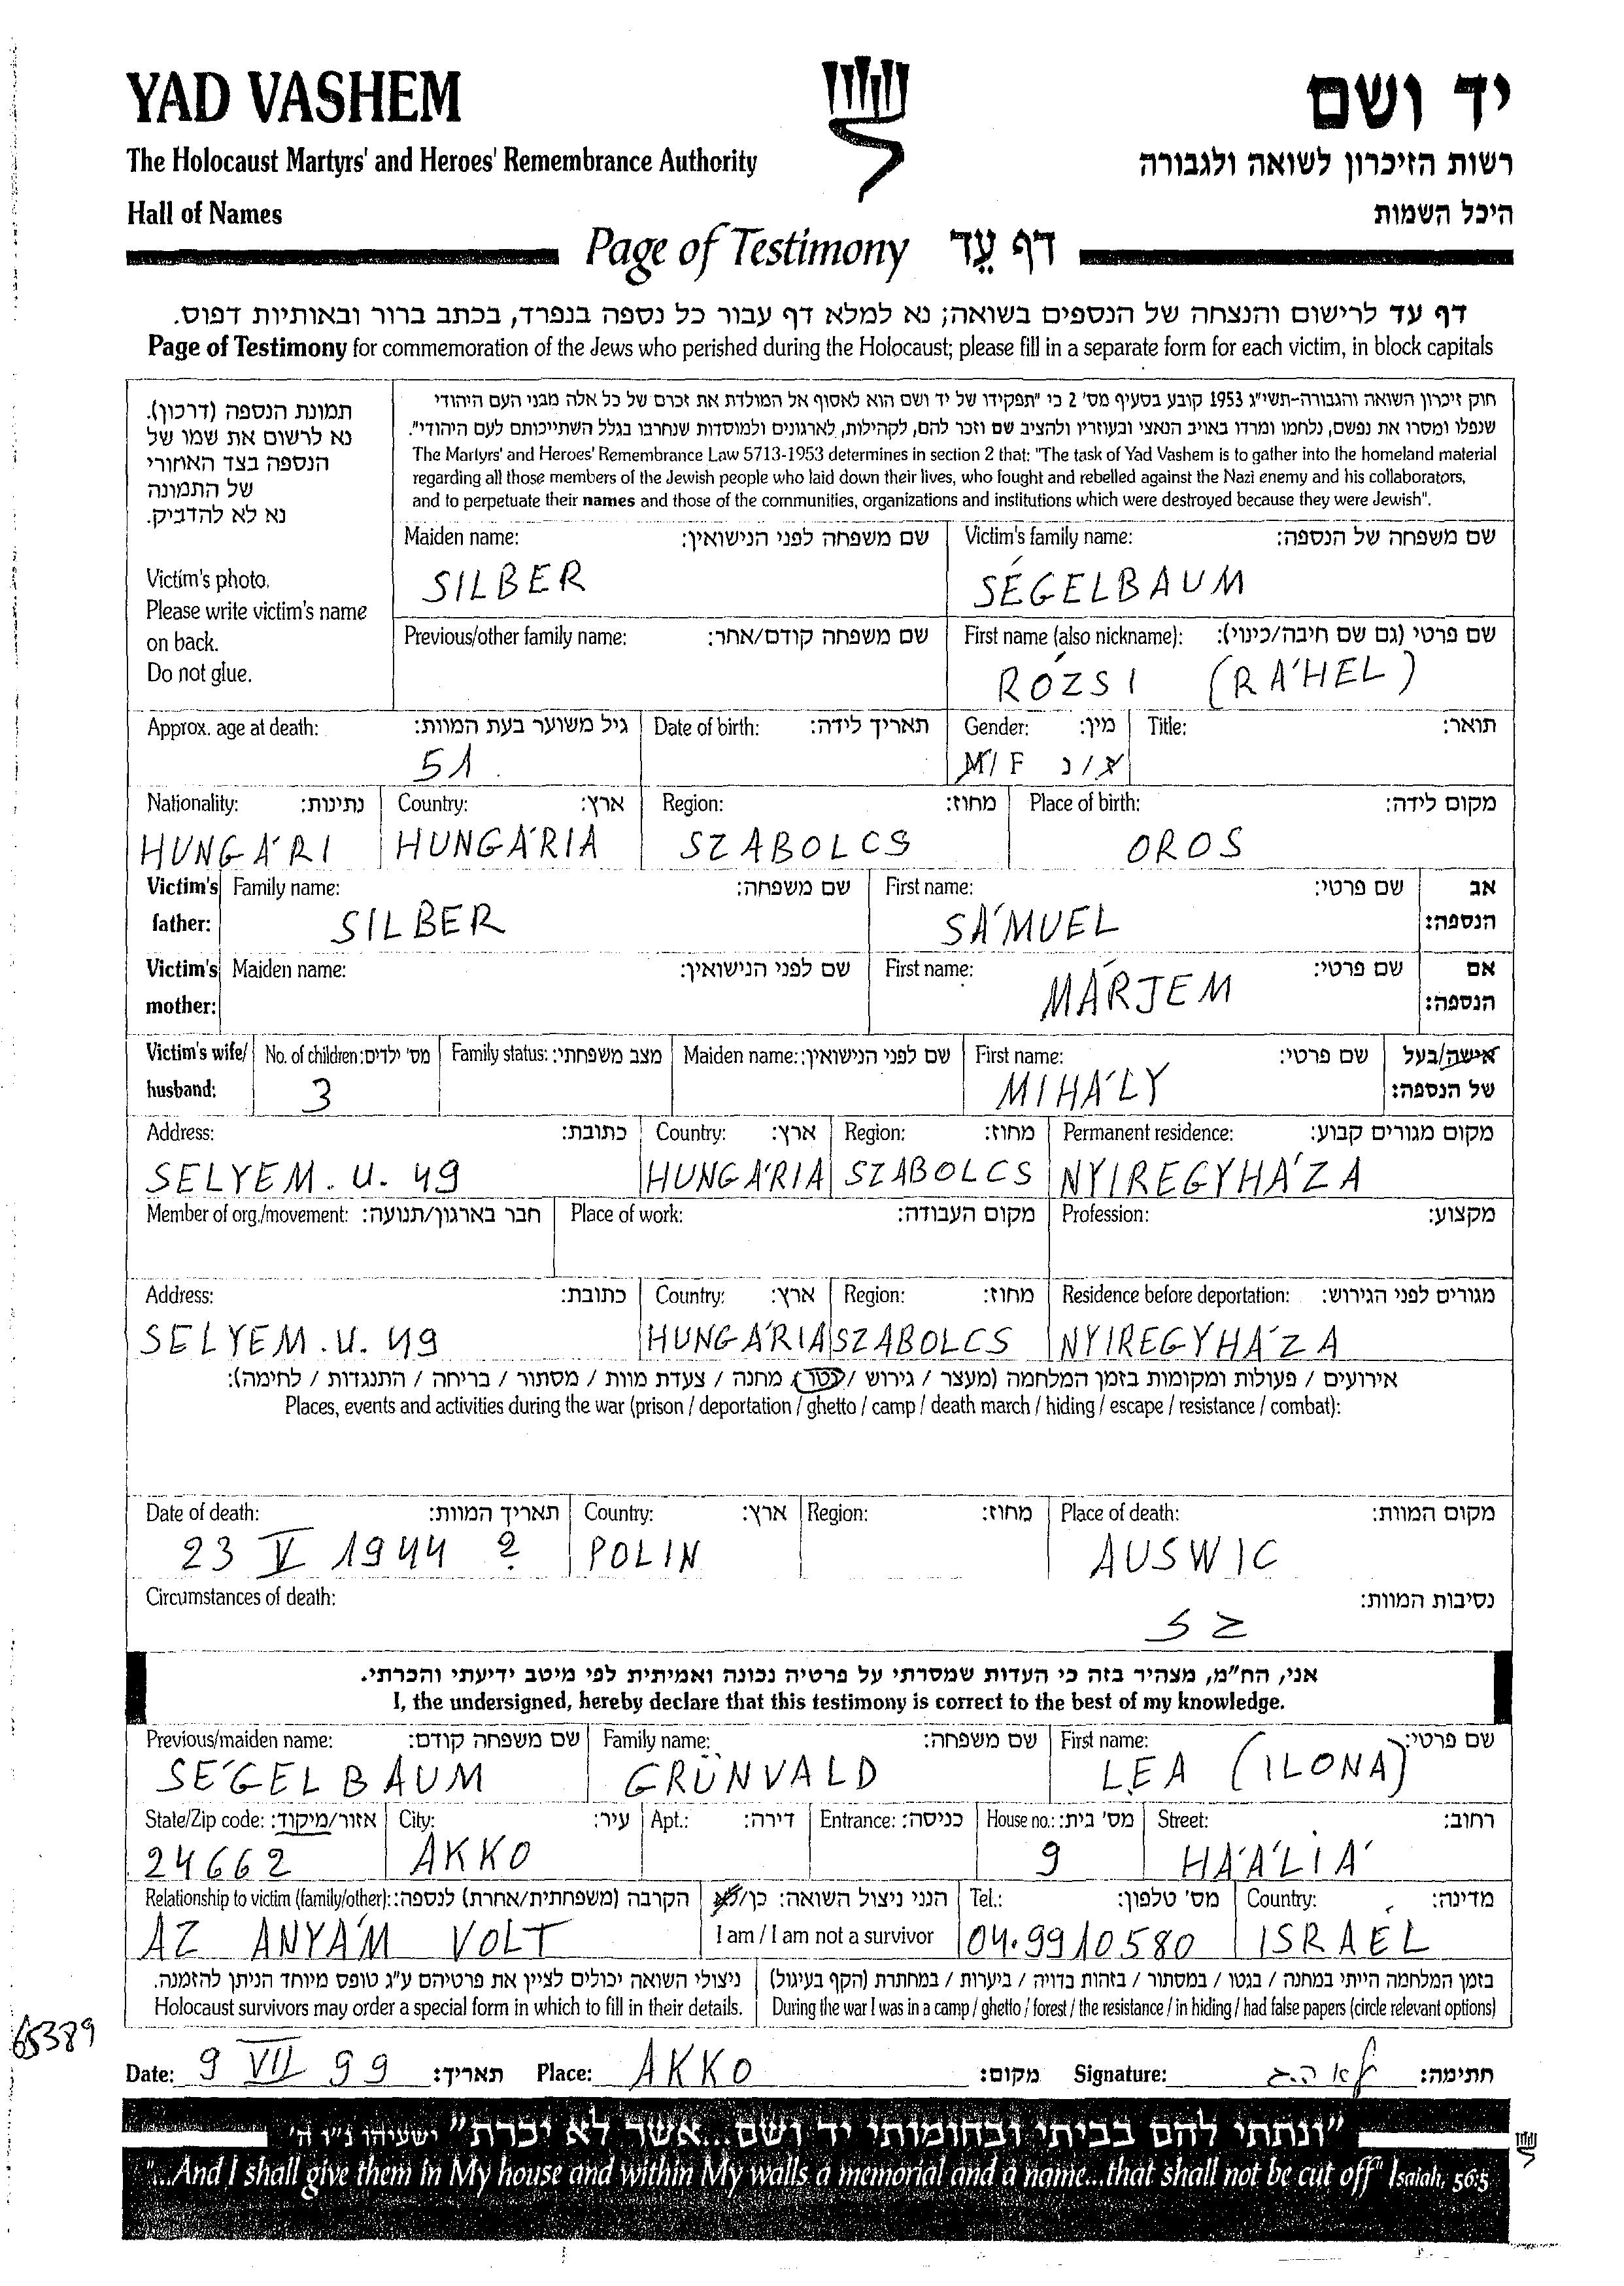 YAD VASHEM
יד ושם
The Holocaust Martyrs' and Heroes' Remembrance Authority
רשות הזיכרון לשואה ולגבורה
Hall of Names
היכל השמות
Page of Testimony דף עֵד
דף עד לרישום והנצחה של הנספים בשואה; נא למלא דף עבור כל נספה בנפרד, בכתב ברור ובאותיות דפוס.
Page of Testimony for commemoration of the Jews who perished during the Holocaust; please fill in a separate form for each victim, in block capitals
תמונת הנספה (דרכון).
נא לרשום את שמו של
הנספה בצד האחורי
של התמונה
נא לא להדביק.
Victim's photo.
Please write victim's name
on back.
Do not glue.
חוק זיכרון השואה והגבורה-תשי"ג 1953 קובע בסעיף מס' 2 כי "תפקידו של יד ושם הוא לאסוף אל המולדת את זכרם של כל אלה מבני העם היהודי
שנפלו ומסרו את נפשם, נלחמו ומרדו באויב הנאצי ובעוזריו ולהציב שם וזכר להם, לקהילות, לארגונים ולמוסדות שנחרבו בגלל השתייכותם לעם היהודי".
The Martyrs' and Heroes' Remembrance Law 5713-1953 determines in section 2 that: "The task of Yad Vashem is to gather into the homeland material
regarding all those members of the Jewish people who laid down their lives, who fought and rebelled against the Nazi enemy and his collaborators,
and to perpetuate their names and those of the communities, organizations and institutions which were destroyed because they were Jewish".
Maiden name: שם משפחה לפני הנישואין: Victim's family name: שם משפחה של הנספה:
SILBER SÉGELBAUM
Previous/other family name: שם משפחה קודם/אחר: First name (also nickname): שם פרטי (גם שם חיבה/כינוי):
RÓZSI (RÁHEL)
Approx. age at death: גיל משוער בעת המוות: Date of birth: תאריך לידה: Gender: מין: Title: תואר:
51 M/F ז/נ
Nationality: נתינות: Country: ארץ: Region: מחוז: Place of birth: מקום לידה:
HUNGÁRI HUNGÁRIA SZABOLCS OROS
Victim's father: Family name: שם משפחה: First name: שם פרטי: אב הנספה:
SILBER SÁMUEL
Victim's mother: Maiden name: שם לפני הנישואין: First name: שם פרטי: אם הנספה:
MÁRJEM
Victim's wife/ husband: No. of children: מס' ילדים: Family status: מצב משפחתי: Maiden name: שם לפני הנישואין: First name: שם פרטי: אישה/בעל של הנספה:
3 MIHÁLY
Address: כתובת: Country: ארץ: Region: מחוז: Permanent residence: מקום מגורים קבוע:
SELYEM. U. 49 HUNGÁRIA SZABOLCS NYIREGYHÁZA
Member of org./movement: חבר בארגון/תנועה: Place of work: מקום העבודה: Profession: מקצוע:
Address: כתובת: Country: ארץ: Region: מחוז: Residence before deportation: מגורים לפני הגירוש:
SELYEM. U. 49 HUNGÁRIA SZABOLCS NYIREGYHÁZA
אירועים / פעולות ומקומות בזמן המלחמה (מעצר / גירוש / גטו / מחנה / צעדת מוות / מסתור / בריחה / התנגדות / לחימה):
Places, events and activities during the war (prison / deportation / ghetto / camp / death march / hiding / escape / resistance / combat):
Date of death: תאריך המוות: Country: ארץ: Region: מחוז: Place of death: מקום המוות:
23 V 1944 ? POLIN AUSWIC
Circumstances of death: נסיבות המוות:
אני, הח"מ, מצהיר בזה כי העדות שמסרתי על פרטיה נכונה ואמיתית לפי מיטב ידיעתי והכרתי.
I, the undersigned, hereby declare that this testimony is correct to the best of my knowledge.
Previous/maiden name: שם משפחה קודם: Family name: שם משפחה: First name: שם פרטי:
SÉGELBAUM GRÜNVALD LEA (ILONA)
State/Zip code: אזור/מיקוד: City: עיר: Apt.: דירה: Entrance: כניסה: House no.: מס' בית: Street: רחוב:
24662 AKKO 9 HÁÁLIÁ
Relationship to victim (family/other): הקרבה (משפחתית/אחרת) לנספה: הנני ניצול השואה: כן/לא Tel.: מס' טלפון: Country: מדינה:
AZ ANYÁM VOLT I am / I am not a survivor 04.9910580 ISRAEL
ניצולי השואה יכולים לציין את פרטיהם ע"ג טופס מיוחד הניתן להזמנה. בזמן המלחמה הייתי במחנה / בגטו / במסתור / בזהות בדויה / ביערות / במחתרת (הקף בעיגול)
Holocaust survivors may order a special form in which to fill in their details. During the war I was in a camp / ghetto / forest / the resistance / in hiding / had false papers (circle relevant options)
65389
Date: 9 VII 99 תאריך: Place: AKKO מקום: Signature: חתימה:
"ונתתי להם בביתי ובחומותי יד ושם...אשר לא יכרת" ישעיהו נ"ו ה'
"...And I shall give them in My house and within My walls a memorial and a name...that shall not be cut off" Isaiah, 56:5